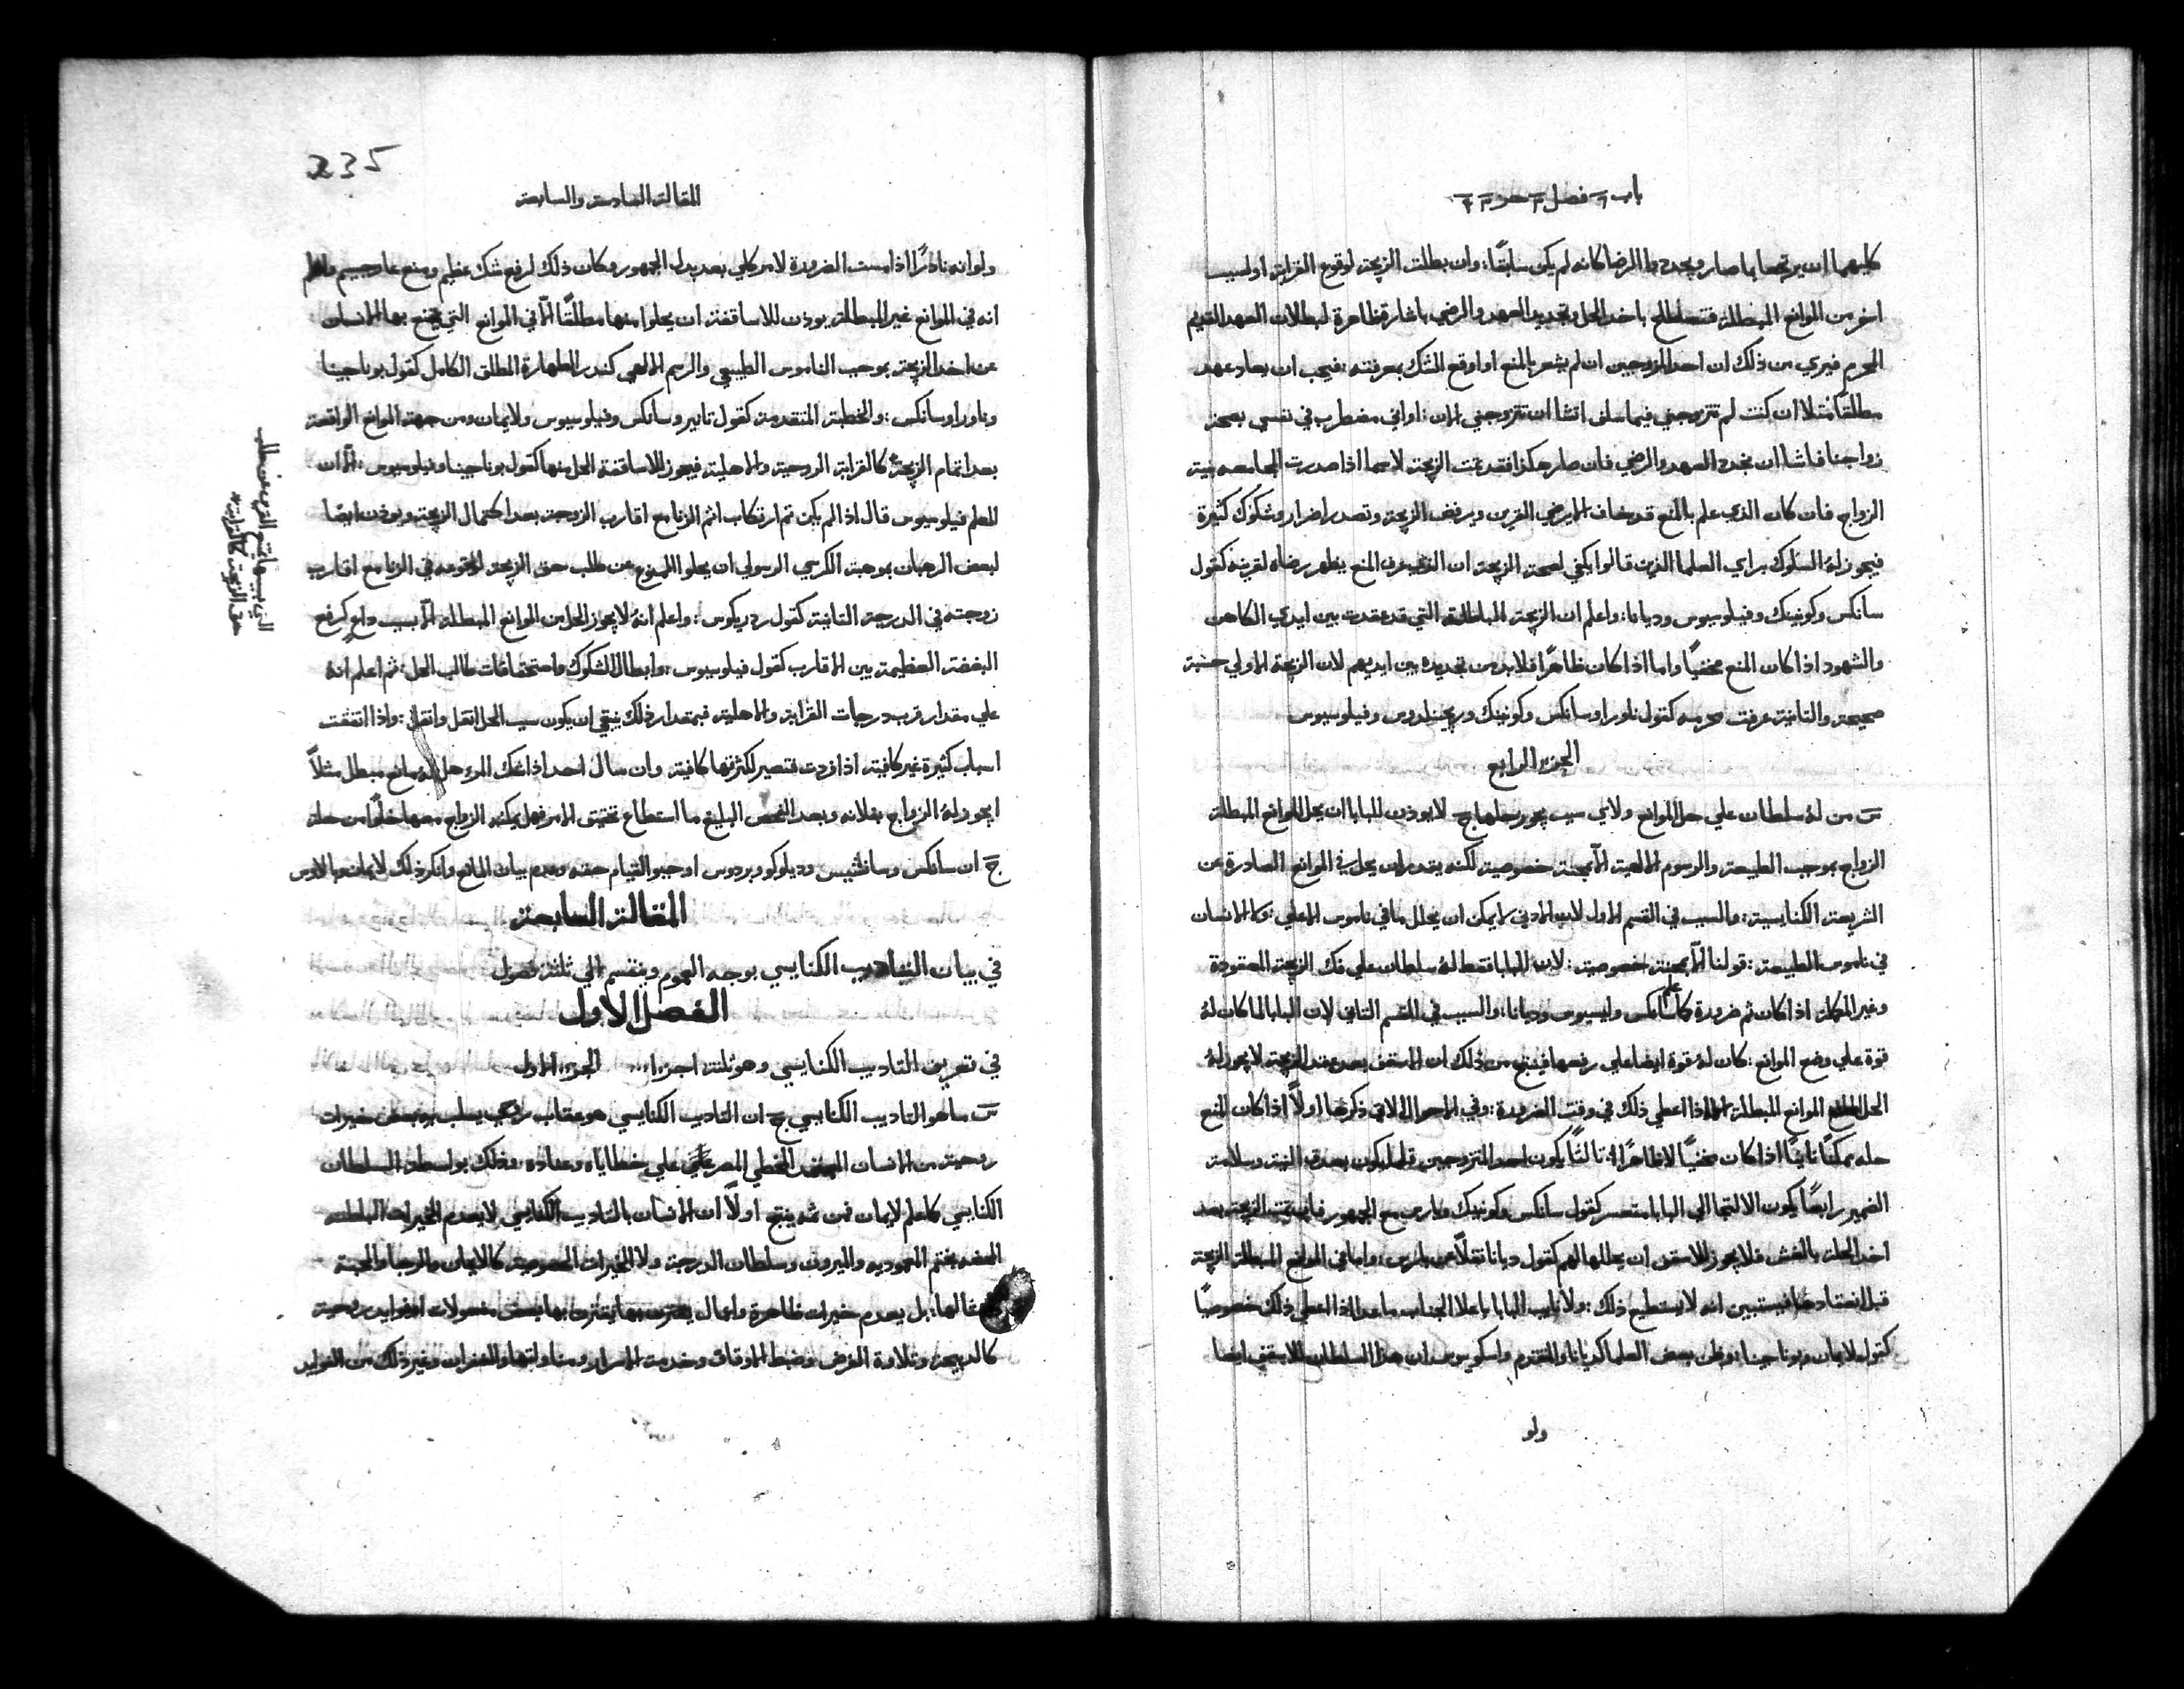 باب فصل جزء
كليهما ان يرتجعا بما صار ويجددا الرضا كانه لم يكن سابقًا: وان بطلت الزيجة لوقوع القرابة او لسبب
اخر من الموانع المبطلة فتصطلح باخد الحل وتجديد العهد والرضي باشارة ظاهرة لبطالان العهد القديم
المحرم فيري من ذلك ان احد المزوجين ان لم يشعر بالمنع او اوقع الشك بمعرفته: فيجب ان يعاد عهد
مطلقًا مثلا ان كنت لم تتزوجني فيما سلف اتشا ان تتزوجني الان: او اني مضطرب في نفسي بصحة
زواجنا فاشا ان نجدد العهد والرضي فان صار هكذا فقد تمت الزيجة لاسيما اذا صدرت المجامعه بنية
الزواج فان كان الذي علم بالمنع قد يخاف الا يرضي القرين ويرفض الزيجة وتصدر اضرار وشكوك كثيرة
فيجوز لهُ السلوك براي العلما الذين قالوا يكفي لصحة الزيجة ان الذي عرف المنع يظهر رضاه لقرينه كقول
سانكس وكونينك وفيلوسيوس وديانا: واعلم ان الزيجة الباطلة التي قد عقدت بين ايدي الكاهن
والشهود اذا كان المنع مخفيًا واما اذا كان ظاهرًا فلابد من تجديده بين ايديهم لان الزيجة الاولي حسبت
صحيحة والثانية عرفت محرمه كقول ناورا وسانكس وكونينك وريجينلدوس وفيلوسيوس
الجزء الرابع
س من لهُ سلطان علي حل الموانع ولاي سبب يجوز حلها ج لا يوذن للبابا ان يحل الموانع المبطلة
الزواج بموجب الطبيعة والرسوم الالهية الّا بمحنة خصوصية لكنه يقدر ان يحل في الموانع الصادرة عن
الشريعة الكنايسية: والسبب في القسم الاول لان الادني لا يمكن ان يحلل ما في ناموس الاعلي: ولا الانسان
في ناموس الطبيعة: قولنا الّا بمحنة خصوصية: لان البابا قد عطا لهُ سلطان علي فك الزيجة المعقودة
وغير المكملة اذا كان ثم ضرورة كما علم سانكس وليسيوس وديانا: والسبب في القسم الثاني لان البابا لما كان لهُ
قوة علي وضع الموانع: كان لهُ قوة ايضا علي رفعها فينتج من ذلك ان الاسقف بعد عقد الزيجة لا يجوز لهُ
الحل الموانع المبطلة الا اذا اعطي ذلك في وقت الضرورة: وفي الاحوال الاتي ذكرها اولًا اذا كان المنع
حله ممكنًا ثانيًا اذا كان مخفيًا لا ظاهرًا ثالثًا يكون احد المتزوجين قبل يكون بصدق النية وسلامة
الضمير رابعًا يكون الالتجا الي البابا متعسر كقول سانكس وكونينك وبارى مع الجمهور فان تمت الزيجة بعد
اخد الحلة بالغش فلا يجوز للاسقف ان يحللها لهم كقول ديانا نقلًا عن بارى: واما في الموانع المبطلة الزيجة
قبل انعقادها فيستبين انه لا يستطيع ذلك: ولا نايب البابا باعلا الجناب ما عدا اذا اعطي ذلك خصوصيًا
كقول لايمان وبوناجينا: وظن بعض العلما كديانا والمتقدم واسكوبيوس ان هذا السلطان للاسقف ايضا
ولو
235
المقالة السادسة والسابعة
ولو انه نادرًا اذا مست الضرورة لامر كلي بعد يدل الجمهور وكان ذلك لرفع شك عظيم ومنع عار جسيم واعلم
انه في الموانع غير المبطلة يوذن للاساقفة ان يحلوا منها مطلقًا الّا في الموانع التي يمتنع بها الانسان
عن اخد الزيجة بموجب الناموس الطبيعي والرسم الالهي كندر الطهارة المطلق الكامل كقول بوناجينا
وناورا وسانكس: والخطبة المتقدمة كقول تانير وسانكس وفيلوسيوس ولايمان ومن جهة الموانع الواقعة
بعد اتمام الزيجة كالقرابة الروحية والاهلية فيجوز للاساقفة الحل منها كقول بوناجينا وفيلوسيوس: الّا ان
المعلم فيلوسيوس قال اذا لم يكن تم ارتكاب اثم الزنا مع اقارب الزوجة بعد اكتمال الزيجة ويوذن ايضًا
لبعض الرهبان بموجب الكرسي الرسولي ان يحلوا الممنوع عن طلب حق الزيجة لوقوعه في الزنا مع اقارب
زوجته في الدرجة الثانية كقول ردريكوس: واعلم انهُ لا يجوز الحل من الموانع المبطلة الّا بسبب داعٍ كرفع
البغضة العظيمة بين الاقارب كقول فيلوسيوس: وابطال الشكوك واستحقاقات طالب الحل: ثم اعلم انهُ
علي مقدار قرب درجات القرابة والاهلية فبمقدار ذلك ينبغي ان يكون سبب الحل اثقل واثقل: واذا اتفقت
اسباب كثيرة غير كافية اذا فردت فتصير لكثرتها كافية وان سال احد اذا شك المرء هل لهُ مانع مبطل مثلًا
ايجوز لهُ الزواج بفلانه وبعد الفحص البليغ ما استطاع تحقيق الامر فهل يمكنه الزواج معها خلوًا من حلة
ج ان سانكس وسانشيس وديلوكو وبردوس اوجبوا القيام حقه وعدم بيان المانع وانكر ذلك لايمان وبالاوس
المقالة السابعة
في بيان التاديب الكنايسي بوجه العموم وينقسم الي ثلثة فصول
الفصل الاول
في تعريف التاديب الكنايسي وهو ثلثة اجزاء... الجزء الاول
س ما هو التاديب الكنايسي ج ان التاديب الكنايسي هو عقاب روحي يسلب به بعض خيرات
روحية من الانسان المعتمد المخطي المصر علي خطاياه وعناده وذلك بواسطة السلطان
الكنايسي كما علم لايمان فمن ثمه ينتج اولًا ان الانسان بالتاديب الكنايسي لا يعدم الخيرات الباطنه
بختم المعموديه والميرون وسلطان الدرجة ولا الخيرات كالايمان والرجا والمحبة
بل يعدم خيرات ظاهرة واعمال يقترن بها بعض مفعولات وفوايد روحية
كالدبيحة وتلاوة الفرض وضبط الاوقاف وخدمة الاسرار ومناولتها والغفران وغير ذلك من الفوايد
حق الزيجة كالقرابة